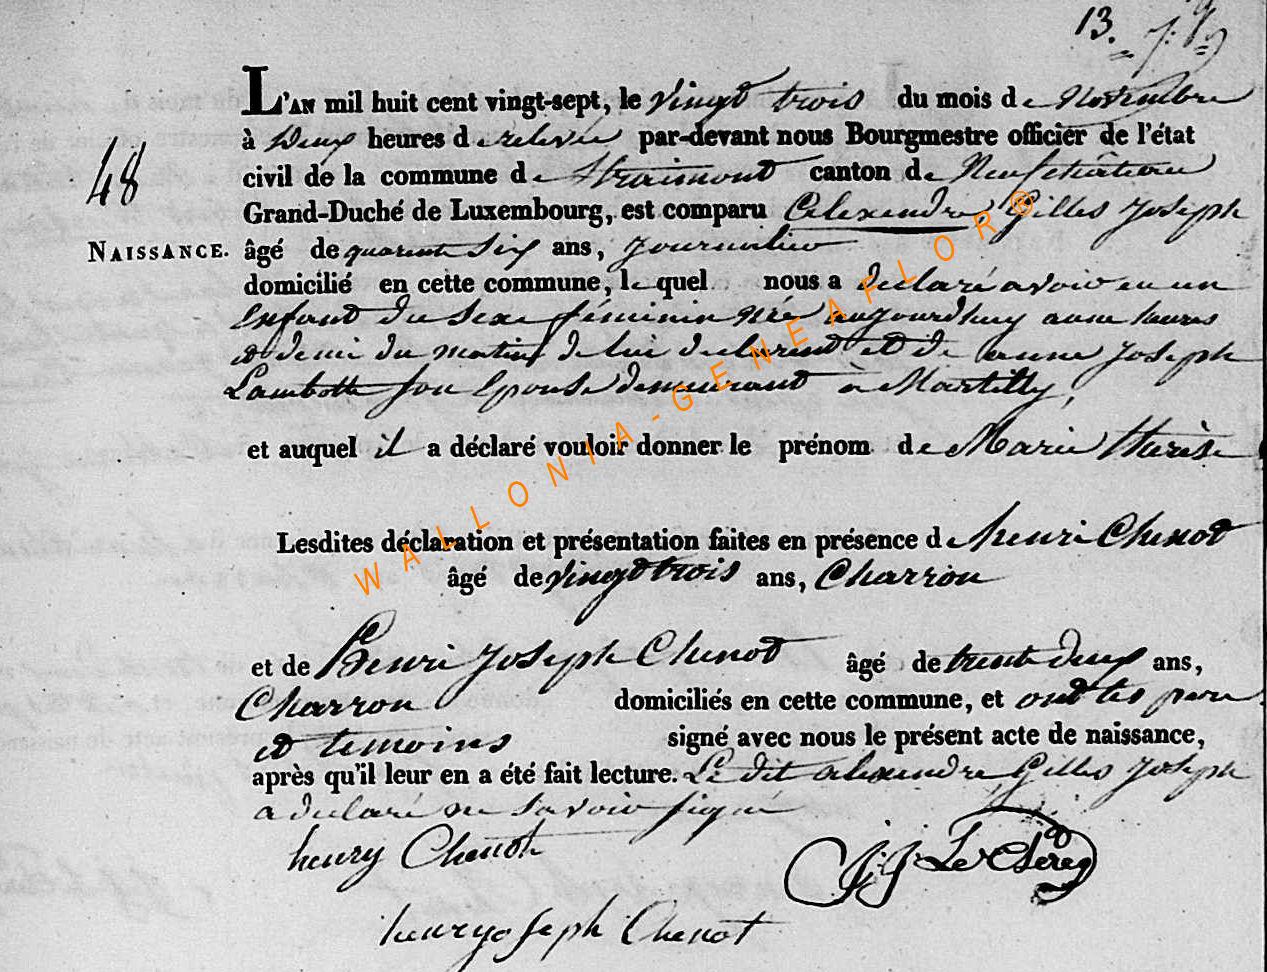 13.
L'AN mil huit cent vingt-sept, le vingt trois du mois de Novembre
à Deux heures de relevée par-devant nous Bourgmestre officier de l'état
48
civil de la commune de Straimont canton de Neufchâteau
Grand-Duché de Luxembourg, est comparu Alexendre Gilles Joseph
NAISSANCE. âgé de quarente Six ans, journalier
domicilié en cette commune, lequel nous a déclaré avoir eu un
Enfant du Sexe féminin Née aujourdhuy a une heures
et demi du matin de lui declarent et de anne Joseph
Lambotte Son Epouse demeurant à Martilly,
et auquel il a déclaré vouloir donner le prénom de Marie thérèse
Lesdites déclaration et présentation faites en présence de henri Chenot
âgé de vingt trois ans, Charron
et de henri Joseph Chenot âgé de trente deux ans,
Charron domiciliés en cette commune, et ont les pere
et temoins signé avec nous le présent acte de naissance,
après qu'il leur en a été fait lecture. Le dit alexendre Gilles Joseph
a declaré ne Savoir signé
henry Chenot
J. J. Le Clerq
henry joseph Chenot
WALLONIA-GENEAFLOR®